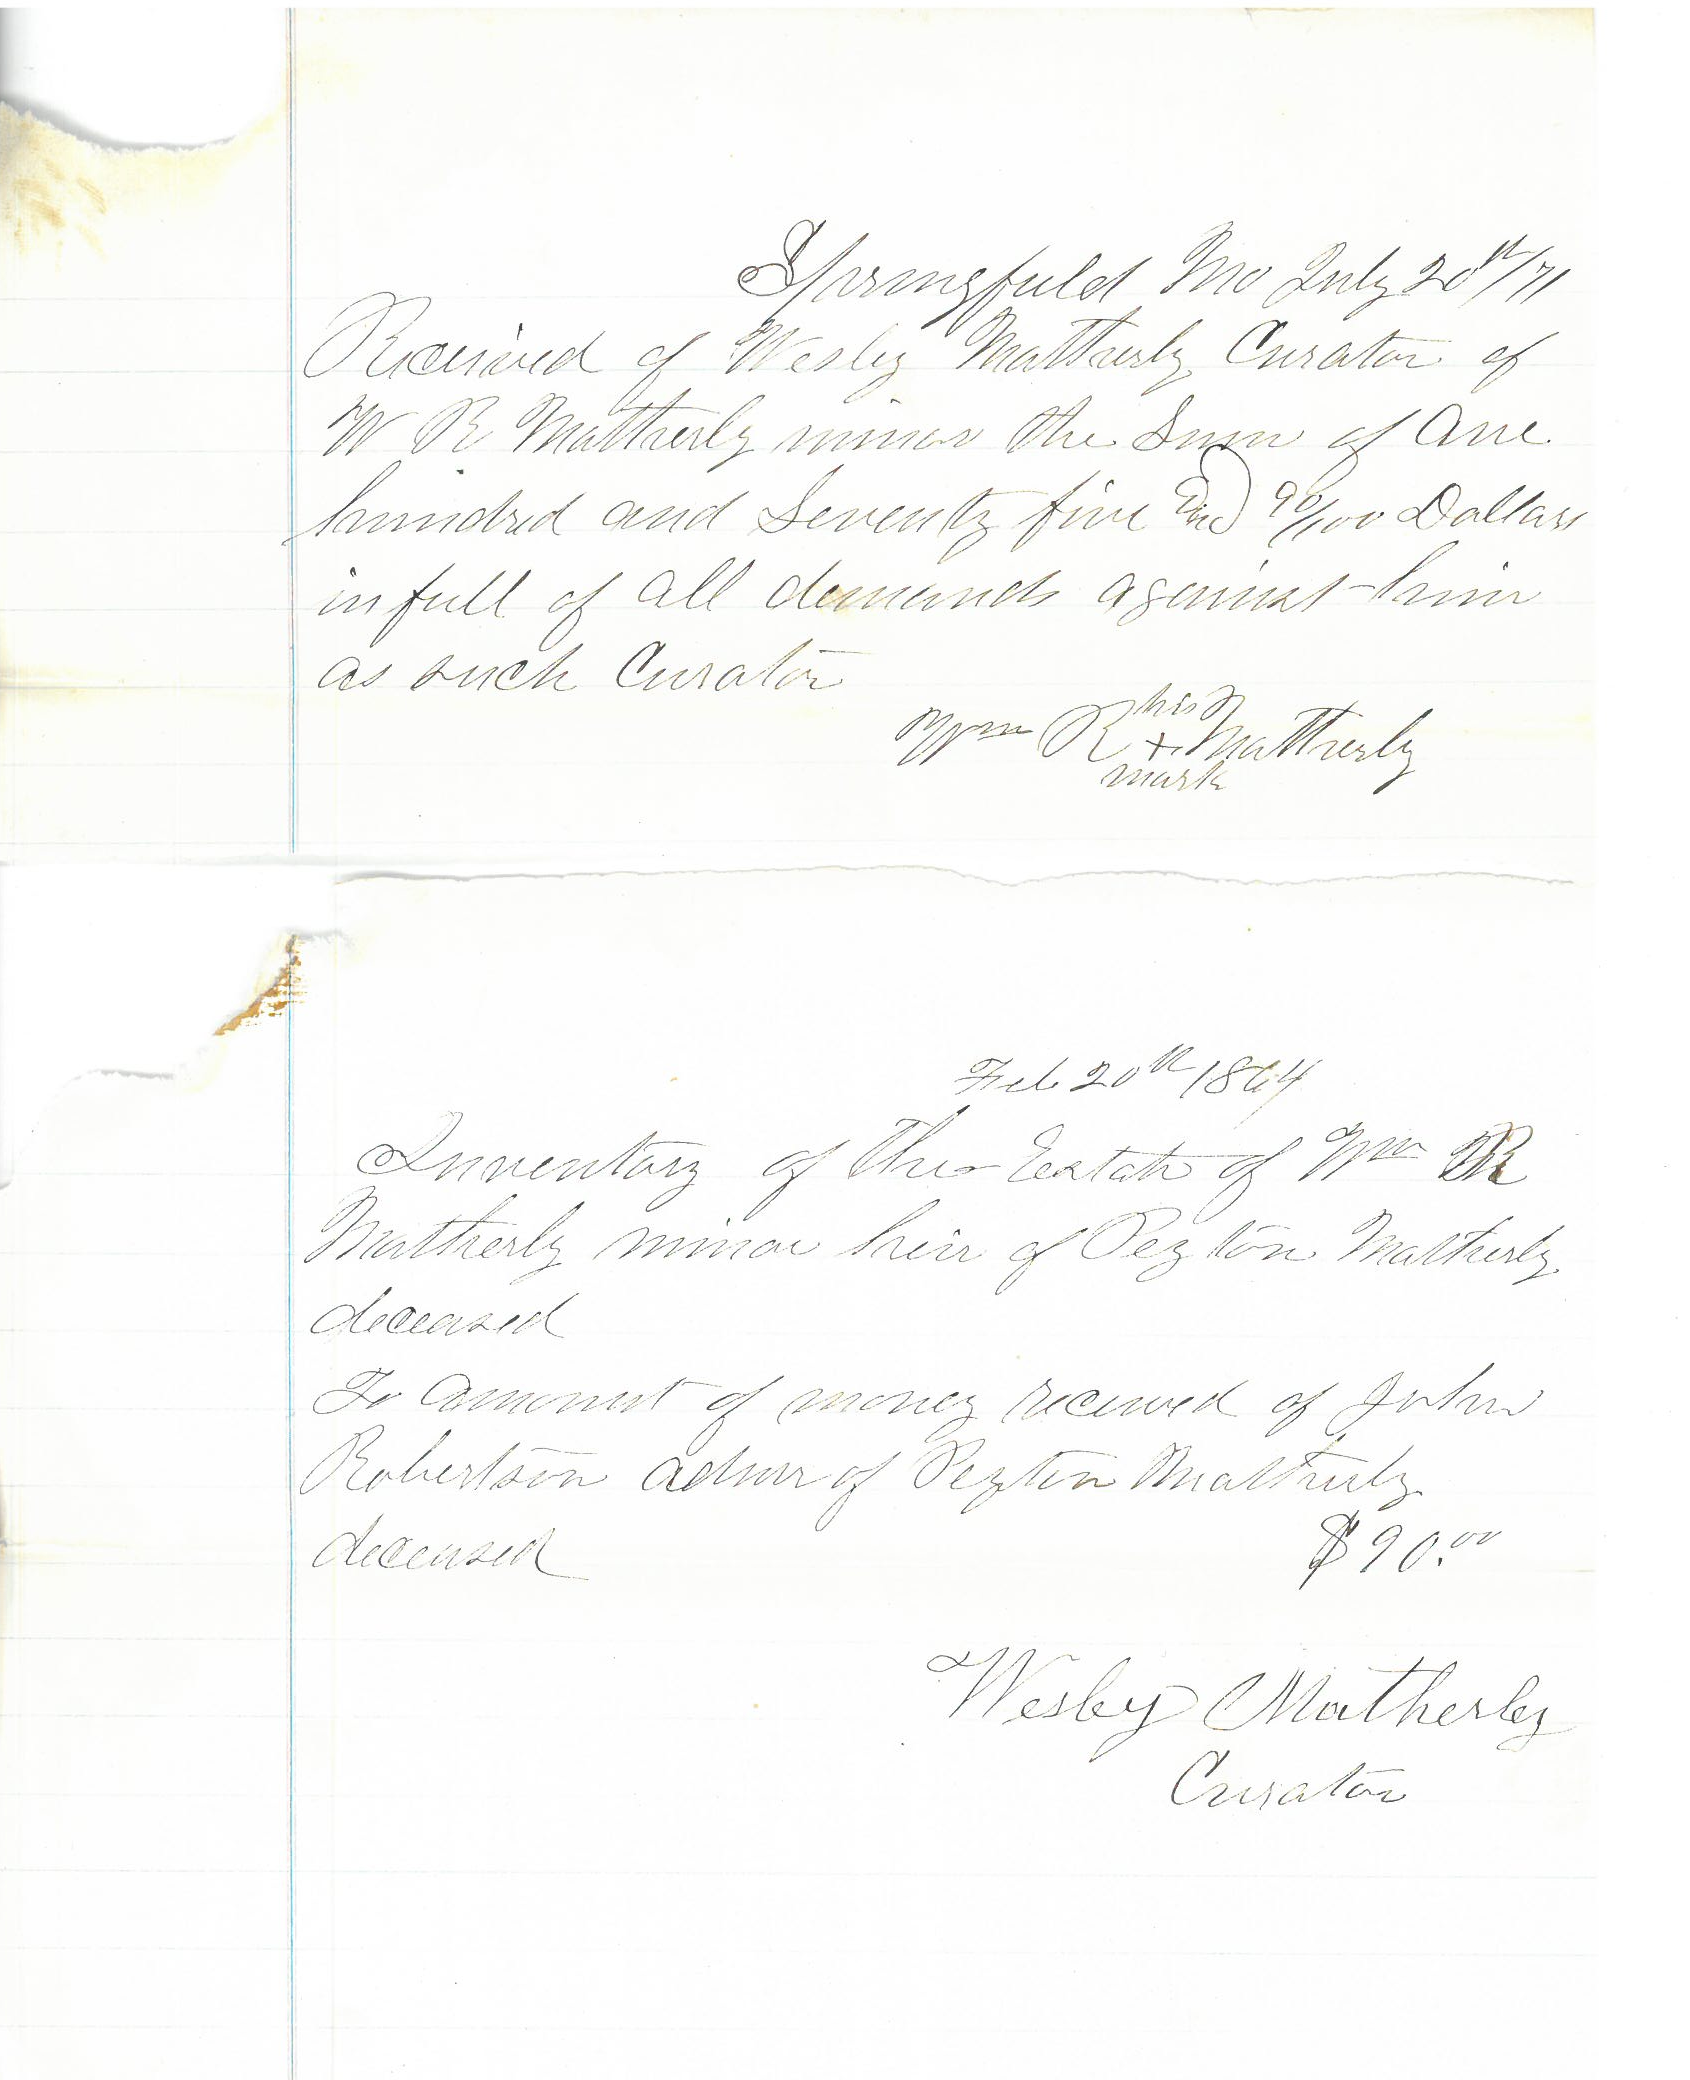 Springfield Mo July 20th/71
Received of Wesley Matherly Curator of
W R Matherly minor the Sum of One
hundred and Seventy five and 90/100 Dollars
in full of all demands against him
as such Curator
his
Wm R + Matherly
mark
Feb 20th 1864
Inventory of The Estate of Wm R
Matherly minor heir of Peyton Matherly
deceased
To amount of money received of John
Robertson admr of Peyton Matherly
deceased $90.00
Wesley Matherly
Curator